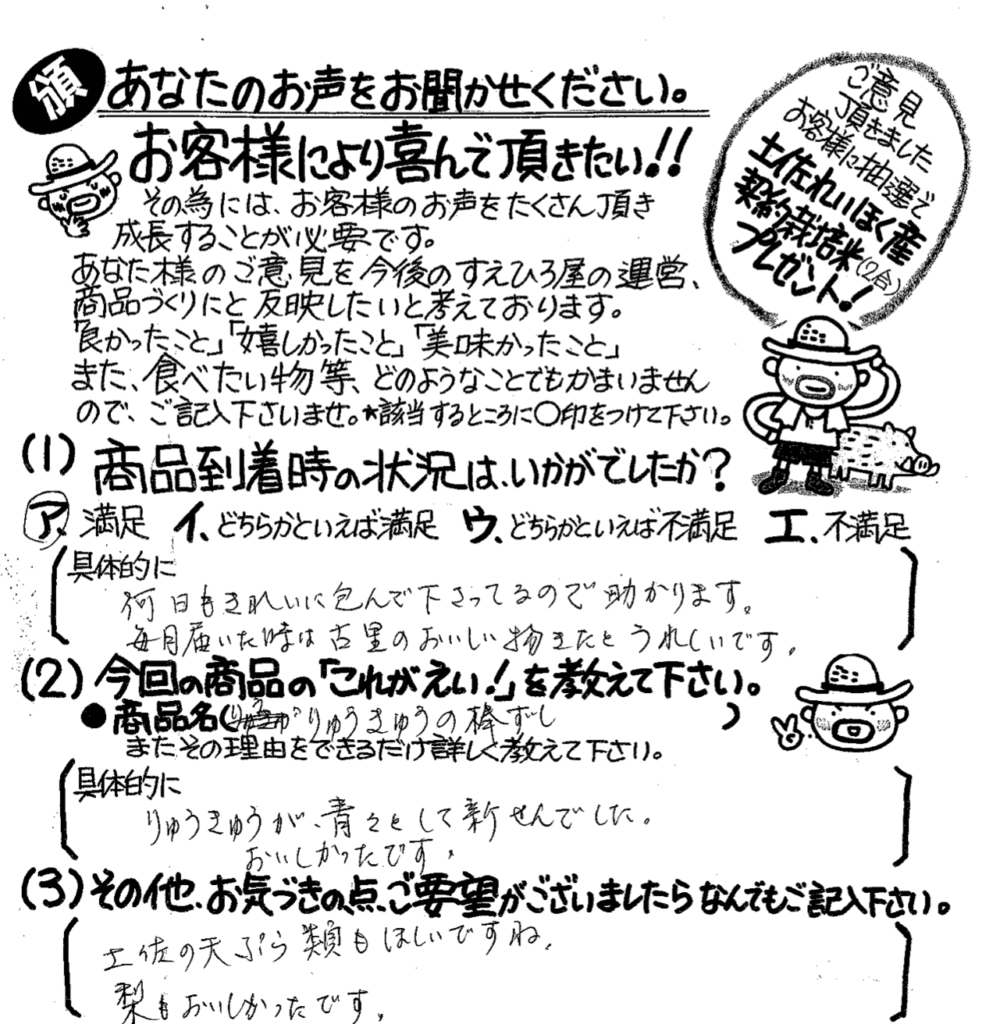 頒
あなたのお声をお聞かせください。
お客様により喜んで頂きたい!!
その為には、お客様のお声をたくさん頂き
成長することが必要です。
あなた様のご意見を今後のすえひろ屋の運営、
商品づくりにと反映したいと考えております。
「良かったこと」「嬉しかったこと」「美味かったこと」
また、食べたい物等、どのようなことでもかまいません
ので、ご記入下さいませ。★該当するところに〇印をつけて下さい。
ご意見
頂きました
お客様に抽選で
土佐れいほく産
契約栽培米(2合)
プレゼント!
(1)商品到着時の状況は、いかがでしたか?
ア、満足 イ、どちらかといえば満足 ウ、どちらかといえば不満足 エ、不満足
具体的に
何日もきれいに包んで下さってるので助かります。
毎月届いた時は古里のおいしい物きたとうれしいです。
(2)今回の商品の「これがえい!」を教えて下さい。
●商品名(りゅうきゅうの棒ずし)
またその理由をできるだけ詳しく教えて下さい。
具体的に
りゅうきゅうが、青々として新せんでした。
おいしかったです。
(3)その他、お気づきの点、ご要望がございましたらなんでもご記入下さい。
土佐の天ぷら類もほしいですね。
梨もおいしかったです。